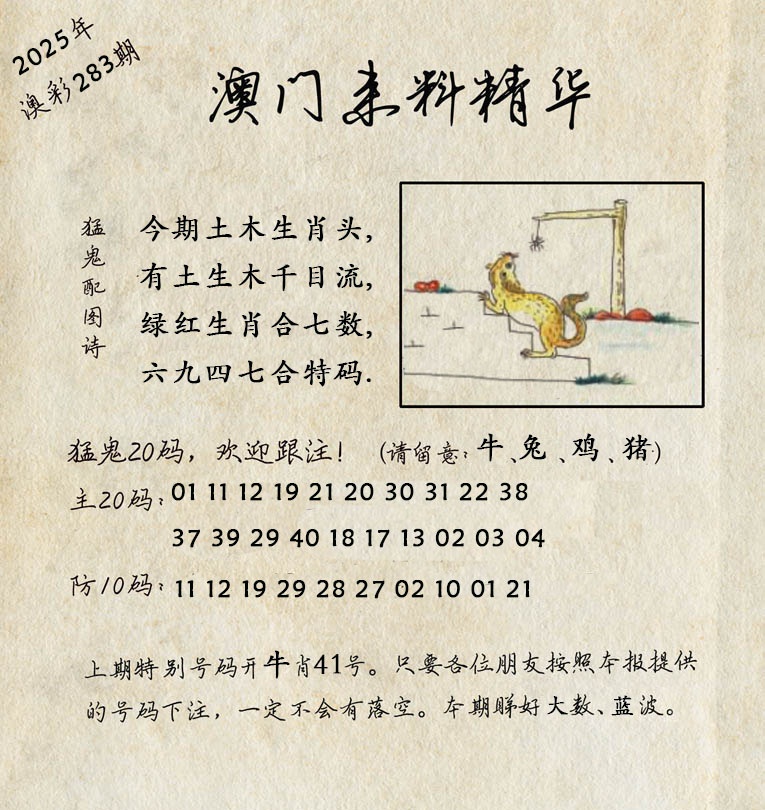 2025年
澳彩283期
澳门来料精华
猛鬼配图诗
今期土木生肖头，
有土生木千目流，
绿红生肖合七数，
六九四七合特码.
猛鬼20码，欢迎跟注！（请留意：牛、兔、鸡、猪）
主20码：01 11 12 19 21 20 30 31 22 38
37 39 29 40 18 17 13 02 03 04
防10码：11 12 19 29 28 27 02 10 01 21
上期特别号码开牛肖41号。只要各位朋友按照本报提供
的号码下注，一定不会有落空。本期睇好大数、蓝波。